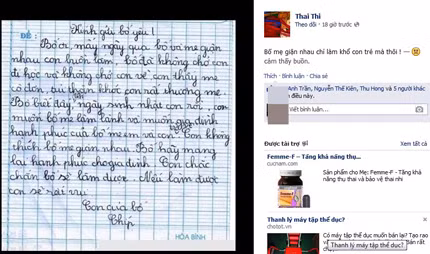 Kính gửi bố yêu!
ĐỀ:
Bố ơi, mấy ngày qua bố và mẹ giận
nhau con buồn lắm, bố đã không chở con
đi học và không chở con về con thấy mẹ
cô đơn, âu thầm khóc con rất thương mẹ.
Bố biết đấy, ngày sinh nhật con rồi, con
muốn bố mẹ làm lành và muốn gia đình
hạnh phúc của bố mẹ em và con. Con không
thích bố mẹ giận nhau. Bố hãy mang
lại hạnh phúc cho gia đình. Con chắc
chắn bố sẽ làm được. Nếu làm được
con sẽ rất vui
Con của bố
Chíp
HÒA BÌNH
Thai Thi
Theo dõi · 18 giờ trước
Bố mẹ giận nhau chỉ làm khổ con trẻ mà thôi! —
cảm thấy buồn.
Thích · Bình luận · Chia sẻ
Anh Trần, Nguyễn Thế Kiên, Thu Hong và 5 người khác
điều này.
Viết bình luận...
Được tài trợ
Xem tất cả
Femme-F – Tăng khả năng thụ...
cucham.com
Sản phẩm cho Mẹ: Femme-F - Tăng
khả năng thụ thai và bảo vệ thai nhi
Thanh lý máy tập thể dục?
chotot.vn
Có máy tập thể dục muốn bán lại? Tạo rao
Thanh lý máy tập thể dục?